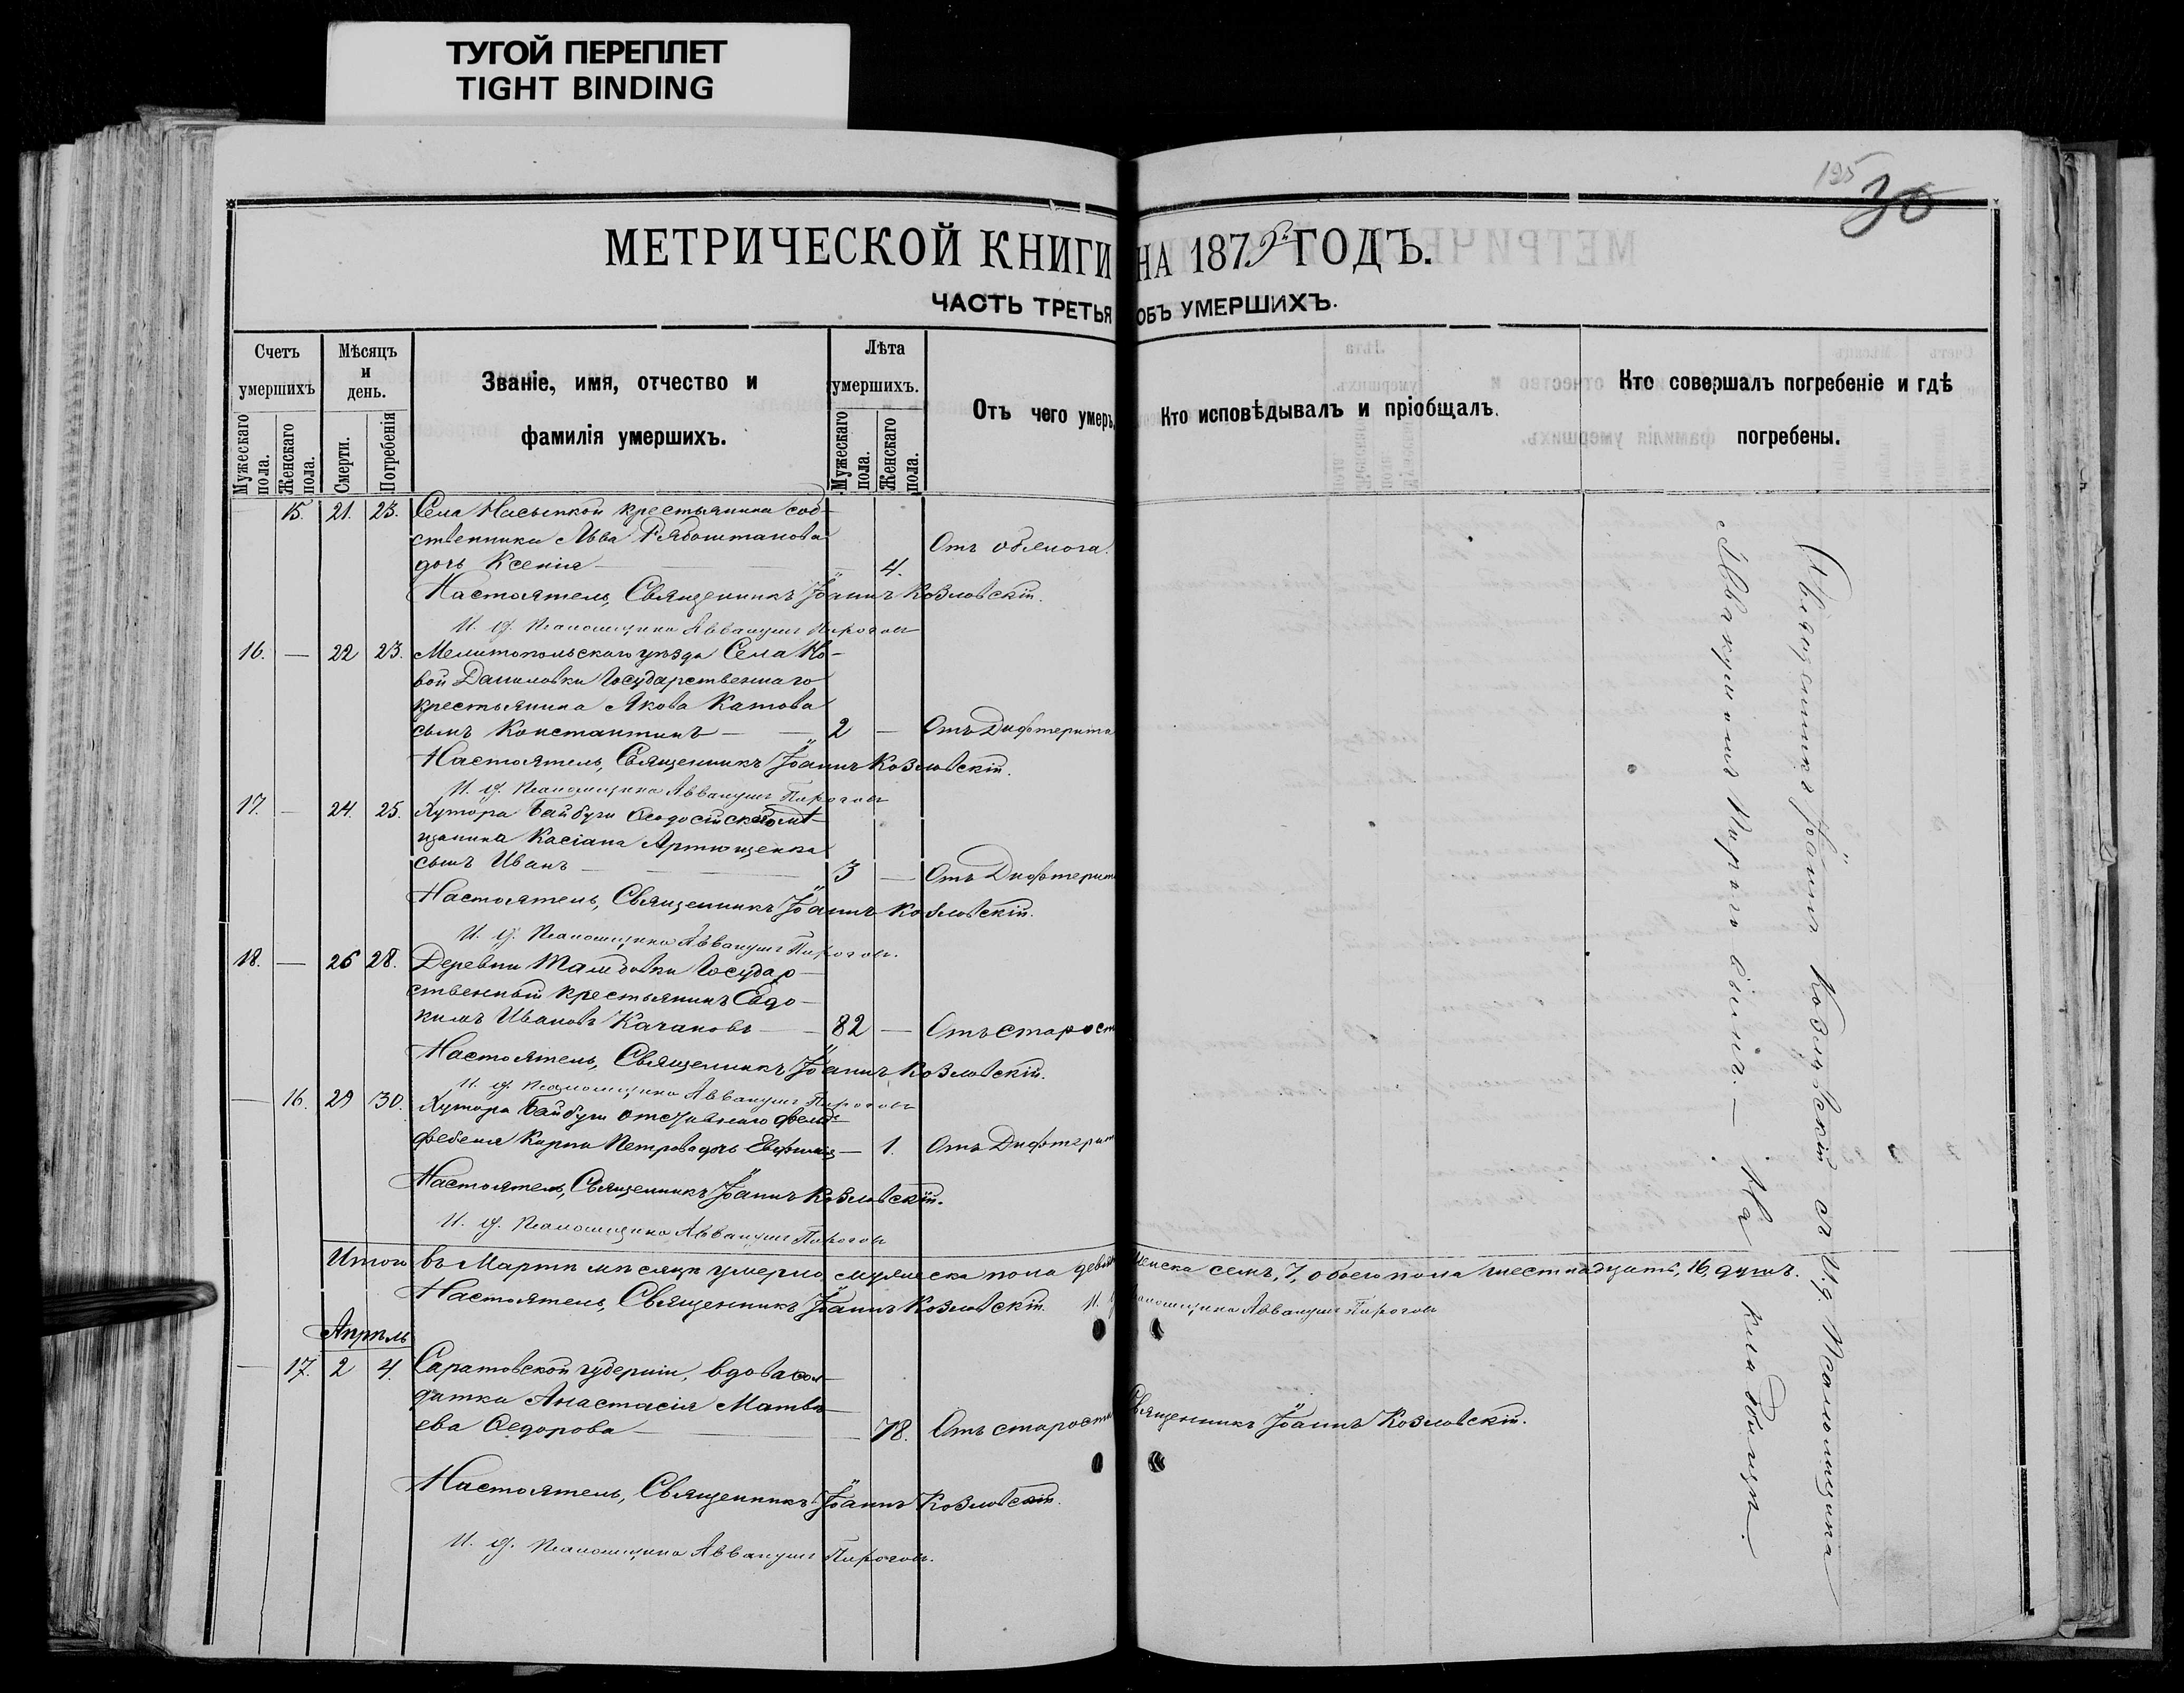 ТУГОЙ ПЕРЕПЛЕТ
TIGHT BINDING
195
30
МЕТРИЧЕСКОЙ КНИГИ НА 1879й ГОДЪ.
ЧАСТЬ ТРЕТЬЯ ОБЪ УМЕРШИХЪ.
Счетъ умершихъ
Мужескаго пола.
Женскаго пола.
Мѣсяцъ и день.
Смерти.
Погребенія
Званіе, имя, отчество и фамилія умершихъ.
Лѣта умершихъ.
Мужескаго пола.
Женскаго пола.
Отъ чего умеръ.
Кто исповѣдывалъ и пріобщалъ.
Кто совершалъ погребеніе и гдѣ погребены.
15. 21. 23. Села Насыпкой крестьянина соб-
ственника Льва Рябоштанова
дочь Ксенія — 4. Отъ
Настоятель, Священникъ Іоаннъ Козловскій.
И. д. Псаломщика Аввакумъ Пироговъ
16. — 22 23. Мелитопольскаго уѣзда Села Но-
вой Даниловки Государственнаго
крестьянина Якова Катова
сынъ Константинъ — 2 — Отъ Дифтерита
Настоятель, Священникъ Іоаннъ Козловскій.
И. д. Псаломщика Аввакумъ Пироговъ
17. — 24. 25. Хутора Байбуги Ѳеодосійскаго мѣ-
щанина Касіана Артющенка
сынъ Иванъ — 3 — Отъ Дифтерит
Настоятель, Священникъ Іоаннъ Козловскій.
И. д. Псаломщика Аввакумъ Пироговъ.
18. — 26 28. Деревни Государ-
ственный крестьянинъ Евдо-
кимъ Ивановъ Качановъ — 82 — Отъ старост
Настоятель, Священникъ Іоаннъ Козловскій.
И. д. Псаломщика Аввакумъ Пироговъ
— 16. 29 30. Хутора Байбуги отставнаго фельд-
фебеля Карпа Петрова дочь — 1. Отъ Дифтерит
Настоятель, Священникъ Іоаннъ Козловскій.
И. д. Псаломщика Аввакумъ Пироговъ
Итого въ Мартѣ мѣсяцѣ умерло, мужеска пола девя женска семь, 7, обоего пола шестнадцать, 16, душъ.
Настоятель, Священникъ Іоаннъ Козловскій. И. д. Псаломщика Аввакумъ Пироговъ
Апрѣль
— 17. 2 4. Саратовской губерніи, вдова сол-
датка Анастасія Матвѣ-
ева Ѳедорова — 78. Отъ старости Священникъ Іоаннъ Козловскій.
Настоятель, Священникъ Іоаннъ Козловскій.
И. д. Псаломщика Аввакумъ Пироговъ.
Священникъ Іоаннъ Козловскій съ И. д. Псаломщика
Аввакумомъ Пироговымъ. — На кладбищѣ.